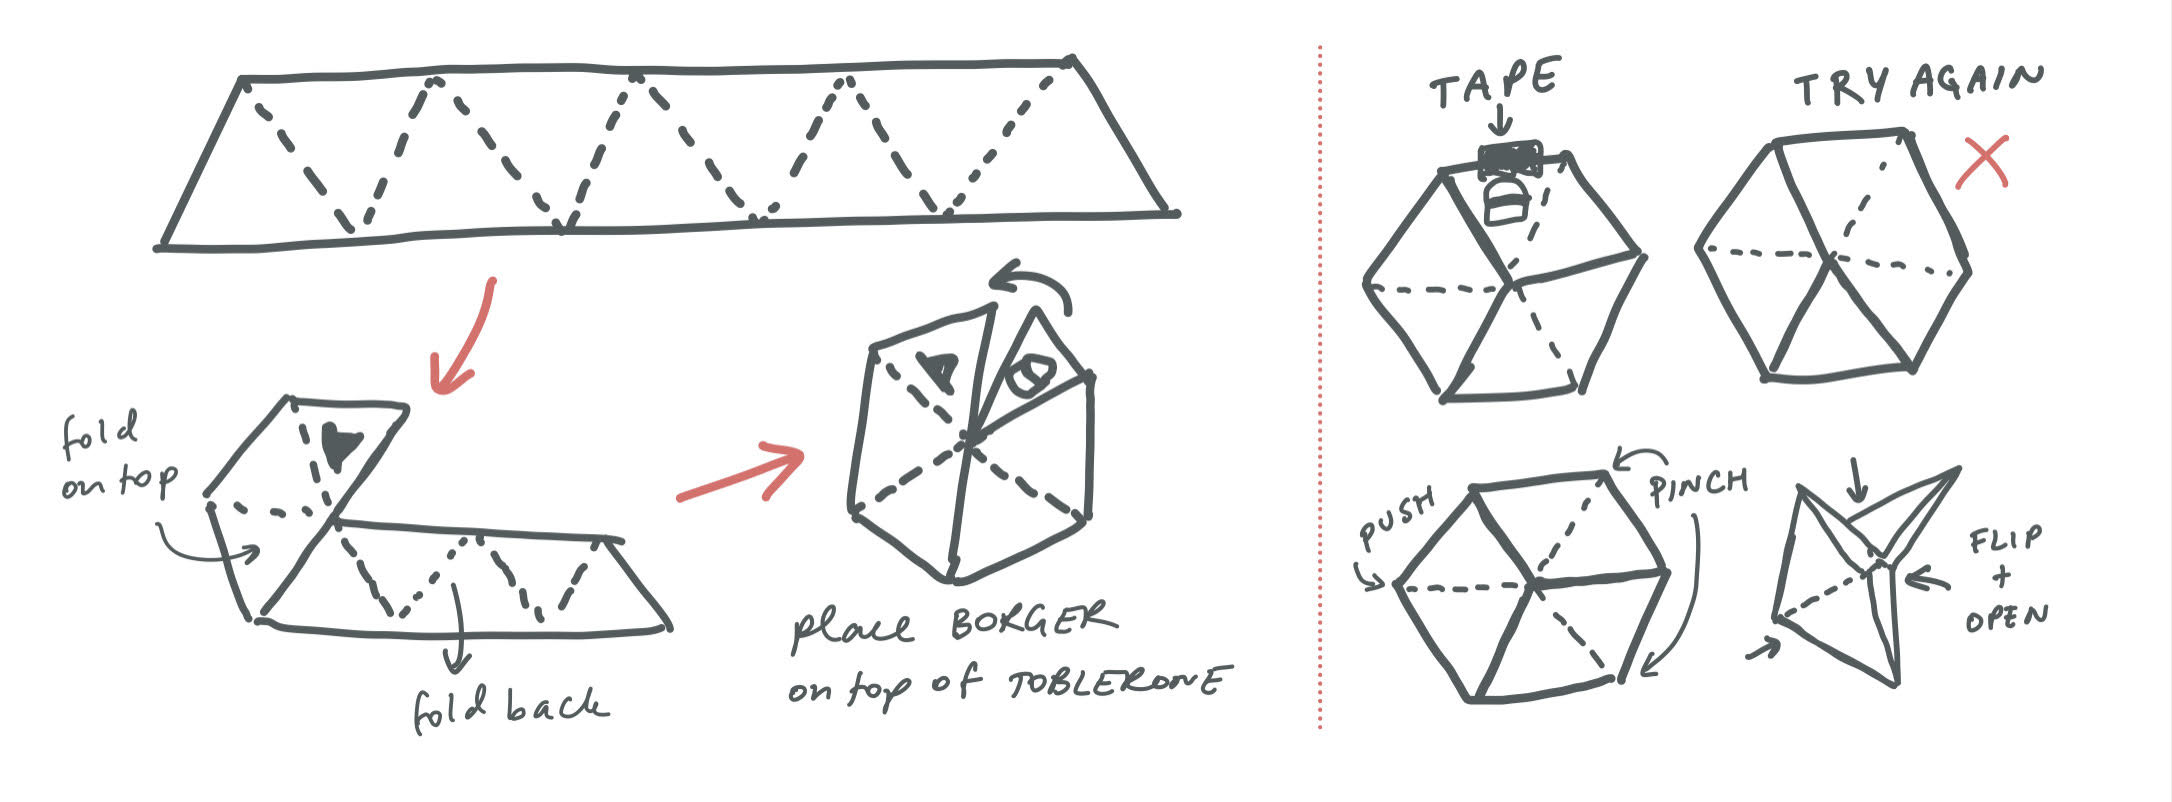 fold
on top
fold back
place BORGER
on top of TOBLERONE
TAPE
TRY AGAIN
PUSH
PINCH
FLIP
+
OPEN